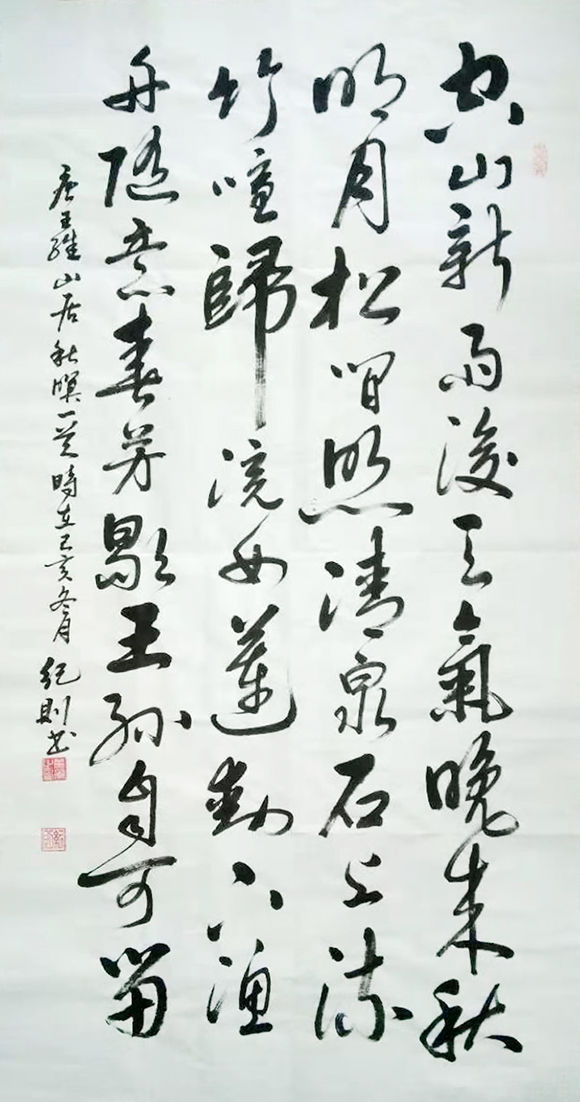 空山新雨後天氣晚來秋
明月松間照清泉石上流
竹喧歸浣女蓮動下漁
舟隨意春芳歇王孫自可留
唐王維山居秋暝一首時在己亥冬月 紀則書